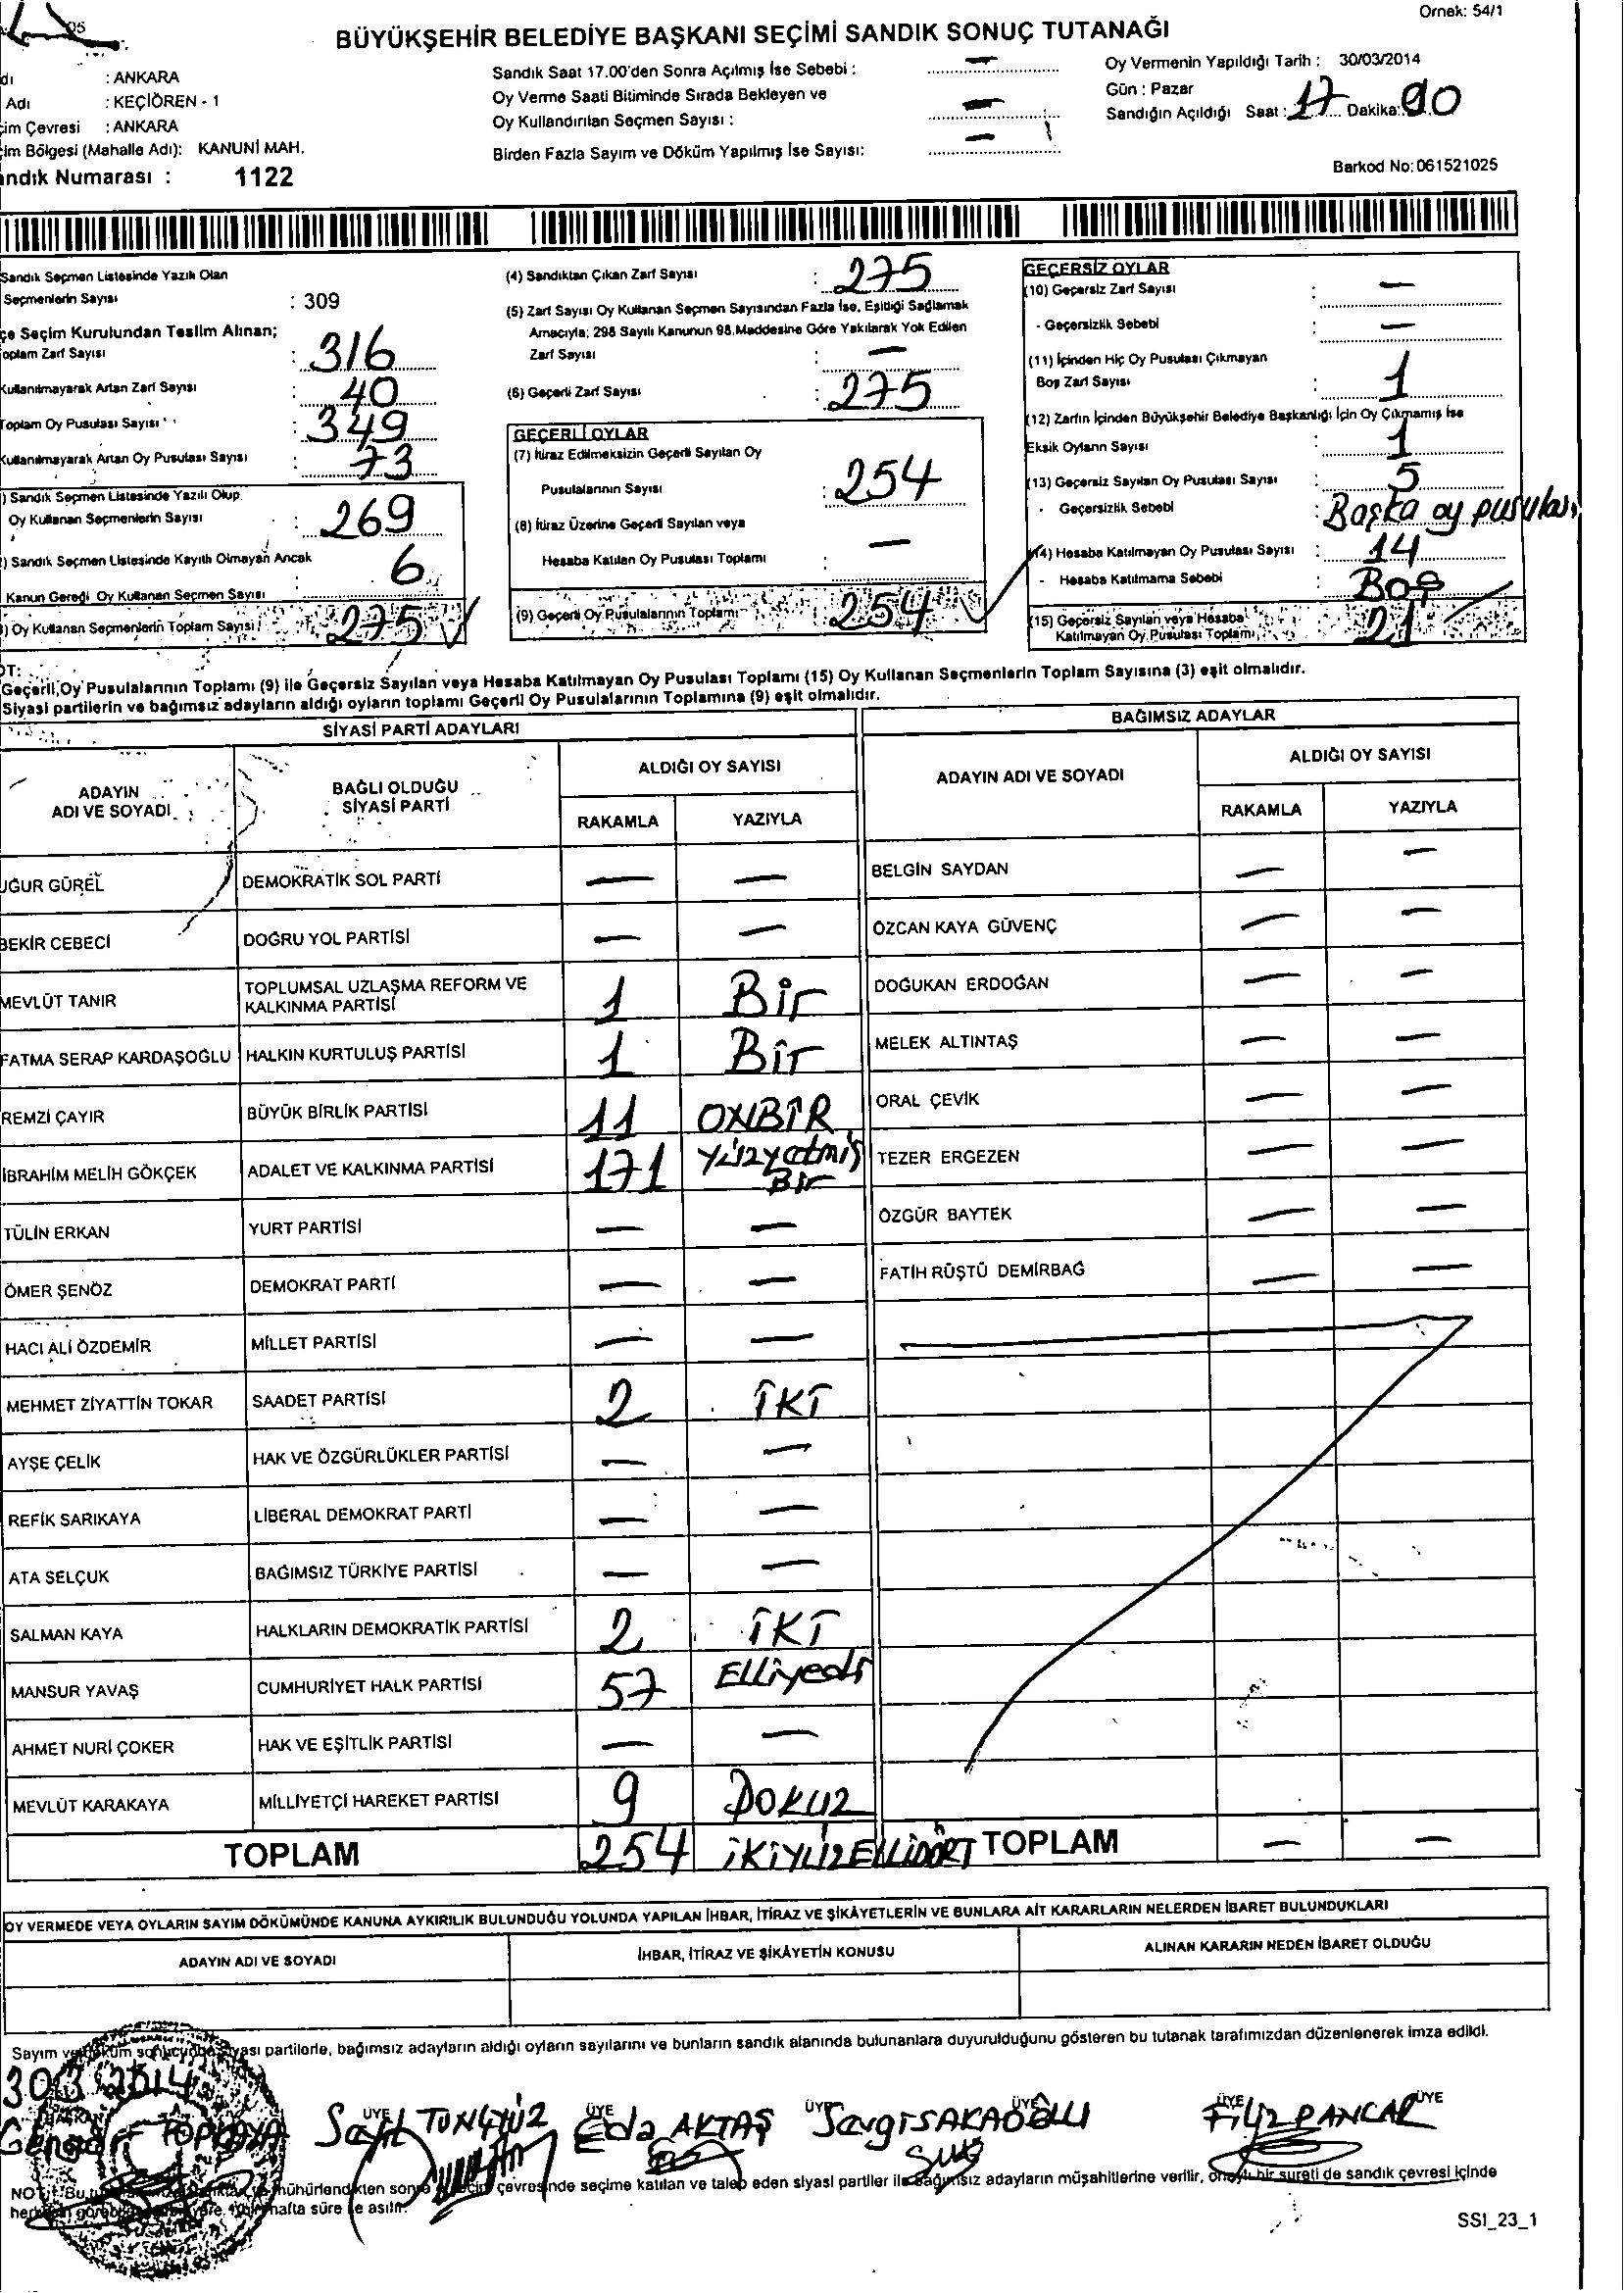 Örnek: 54/1
BÜYÜKŞEHİR BELEDİYE BAŞKANI SEÇİMİ SANDIK SONUÇ TUTANAĞI
dı : ANKARA
Adı : KEÇİÖREN - 1
çim Çevresi : ANKARA
im Bölgesi (Mahalle Adı): KANUNİ MAH.
andık Numarası : 1122
Sandık Saat 17.00'den Sonra Açılmış İse Sebebi : —
Oy Verme Saati Bitiminde Sırada Bekleyen ve
Oy Kullandırılan Seçmen Sayısı : —
Birden Fazla Sayım ve Döküm Yapılmış İse Sayısı: —
Oy Vermenin Yapıldığı Tarih : 30/03/2014
Gün : Pazar
Sandığın Açıldığı Saat : 17 Dakika:
Barkod No: 061521025
Sandık Seçmen Listesinde Yazılı Olan
Seçmenlerin Sayısı : 309
çe Seçim Kurulundan Teslim Alınan;
oplam Zarf Sayısı : 316
Kullanılmayarak Artan Zarf Sayısı : 40
Toplam Oy Pusulası Sayısı : 349
Kullanılmayarak Artan Oy Pusulası Sayısı : 73
) Sandık Seçmen Listesinde Yazılı Olup
Oy Kullanan Seçmenlerin Sayısı : 269
) Sandık Seçmen Listesinde Kayıtlı Olmayan Ancak
Kanun Gereği Oy Kullanan Seçmen Sayısı : 6
) Oy Kullanan Seçmenlerin Toplam Sayısı : 275
(4) Sandıktan Çıkan Zarf Sayısı : 275
(5) Zarf Sayısı Oy Kullanan Seçmen Sayısından Fazla İse, Eşitliği Sağlamak
Amacıyla; 298 Sayılı Kanunun 98.Maddesine Göre Yakılarak Yok Edilen
Zarf Sayısı : —
(6) Geçerli Zarf Sayısı : 275
GEÇERLİ OYLAR
(7) İtiraz Edilmeksizin Geçerli Sayılan Oy
Pusulalarının Sayısı : 254
(8) İtiraz Üzerine Geçerli Sayılan veya
Hesaba Katılan Oy Pusulası Toplamı : —
(9) Geçerli Oy Pusulalarının Toplamı : 254
GEÇERSİZ OYLAR
(10) Geçersiz Zarf Sayısı : —
- Geçersizlik Sebebi : —
(11) İçinden Hiç Oy Pusulası Çıkmayan
Boş Zarf Sayısı : 1
(12) Zarfın İçinden Büyükşehir Belediye Başkanlığı İçin Oy Çıkmamış İse
Eksik Oyların Sayısı : 1
(13) Geçersiz Sayılan Oy Pusulası Sayısı : 5
- Geçersizlik Sebebi : Başka oy pusulası
(14) Hesaba Katılmayan Oy Pusulası Sayısı : 14
- Hesaba Katılmama Sebebi : Boş
(15) Geçersiz Sayılan veya Hesaba
Katılmayan Oy Pusulası Toplamı : 21
OT:
Geçerli Oy Pusulalarının Toplamı (9) ile Geçersiz Sayılan veya Hesaba Katılmayan Oy Pusulası Toplamı (15) Oy Kullanan Seçmenlerin Toplam Sayısına (3) eşit olmalıdır.
Siyasi partilerin ve bağımsız adayların aldığı oyların toplamı Geçerli Oy Pusulalarının Toplamına (9) eşit olmalıdır.
SİYASİ PARTİ ADAYLARI
ADAYIN ADI VE SOYADI BAĞLI OLDUĞU SİYASİ PARTİ ALDIĞI OY SAYISI
RAKAMLA YAZIYLA
UĞUR GÜREL DEMOKRATİK SOL PARTİ — —
BEKİR CEBECİ DOĞRU YOL PARTİSİ — —
MEVLÜT TANIR TOPLUMSAL UZLAŞMA REFORM VE KALKINMA PARTİSİ 1 Bir
FATMA SERAP KARDAŞOĞLU HALKIN KURTULUŞ PARTİSİ 1 Bir
REMZİ ÇAYIR BÜYÜK BİRLİK PARTİSİ 11 ONBİR
İBRAHİM MELİH GÖKÇEK ADALET VE KALKINMA PARTİSİ 171 Yüzyetmiş Bir
TÜLİN ERKAN YURT PARTİSİ — —
ÖMER ŞENÖZ DEMOKRAT PARTİ — —
HACI ALİ ÖZDEMİR MİLLET PARTİSİ — —
MEHMET ZİYATTİN TOKAR SAADET PARTİSİ 2 İKİ
AYŞE ÇELİK HAK VE ÖZGÜRLÜKLER PARTİSİ — —
REFİK SARIKAYA LİBERAL DEMOKRAT PARTİ — —
ATA SELÇUK BAĞIMSIZ TÜRKİYE PARTİSİ — —
SALMAN KAYA HALKLARIN DEMOKRATİK PARTİSİ 2 İKİ
MANSUR YAVAŞ CUMHURİYET HALK PARTİSİ 57 Elliyedi
AHMET NURİ ÇOKER HAK VE EŞİTLİK PARTİSİ — —
MEVLÜT KARAKAYA MİLLİYETÇİ HAREKET PARTİSİ 9 DOKUZ
TOPLAM 254 İKİYÜZELLİDÖRT
BAĞIMSIZ ADAYLAR
ADAYIN ADI VE SOYADI ALDIĞI OY SAYISI
RAKAMLA YAZIYLA
BELGİN SAYDAN — —
ÖZCAN KAYA GÜVENÇ — —
DOĞUKAN ERDOĞAN — —
MELEK ALTINTAŞ — —
ORAL ÇEVİK — —
TEZER ERGEZEN — —
ÖZGÜR BAYTEK — —
FATİH RÜŞTÜ DEMİRBAĞ — —
TOPLAM — —
OY VERMEDE VEYA OYLARIN SAYIM DÖKÜMÜNDE KANUNA AYKIRILIK BULUNDUĞU YOLUNDA YAPILAN İHBAR, İTİRAZ VE ŞİKÂYETLERİN VE BUNLARA AİT KARARLARIN NELERDEN İBARET BULUNDUKLARI
ADAYIN ADI VE SOYADI İHBAR, İTİRAZ VE ŞİKÂYETİN KONUSU ALINAN KARARIN NEDEN İBARET OLDUĞU
Sayım ve döküm sonucunda siyasi partilerle, bağımsız adayların aldığı oyların sayılarını ve bunların sandık alanında bulunanlara duyurulduğunu gösteren bu tutanak tarafımızdan düzenlenerek imza edildi.
30.3.2014
BAŞKAN ÜYE ÜYE ÜYE ÜYE ÜYE ÜYE
TOPKAYA Eda AKTAŞ Sevgi SAKAOĞLU Filiz PANCAR
NOT: mühürlendikten sonra seçim çevresinde seçime katılan ve talep eden siyasi partiler ile bağımsız adayların müşahitlerine verilir, onaylı bir sureti de sandık çevresi içinde
hafta süre ile asılır.
SSI_23_1